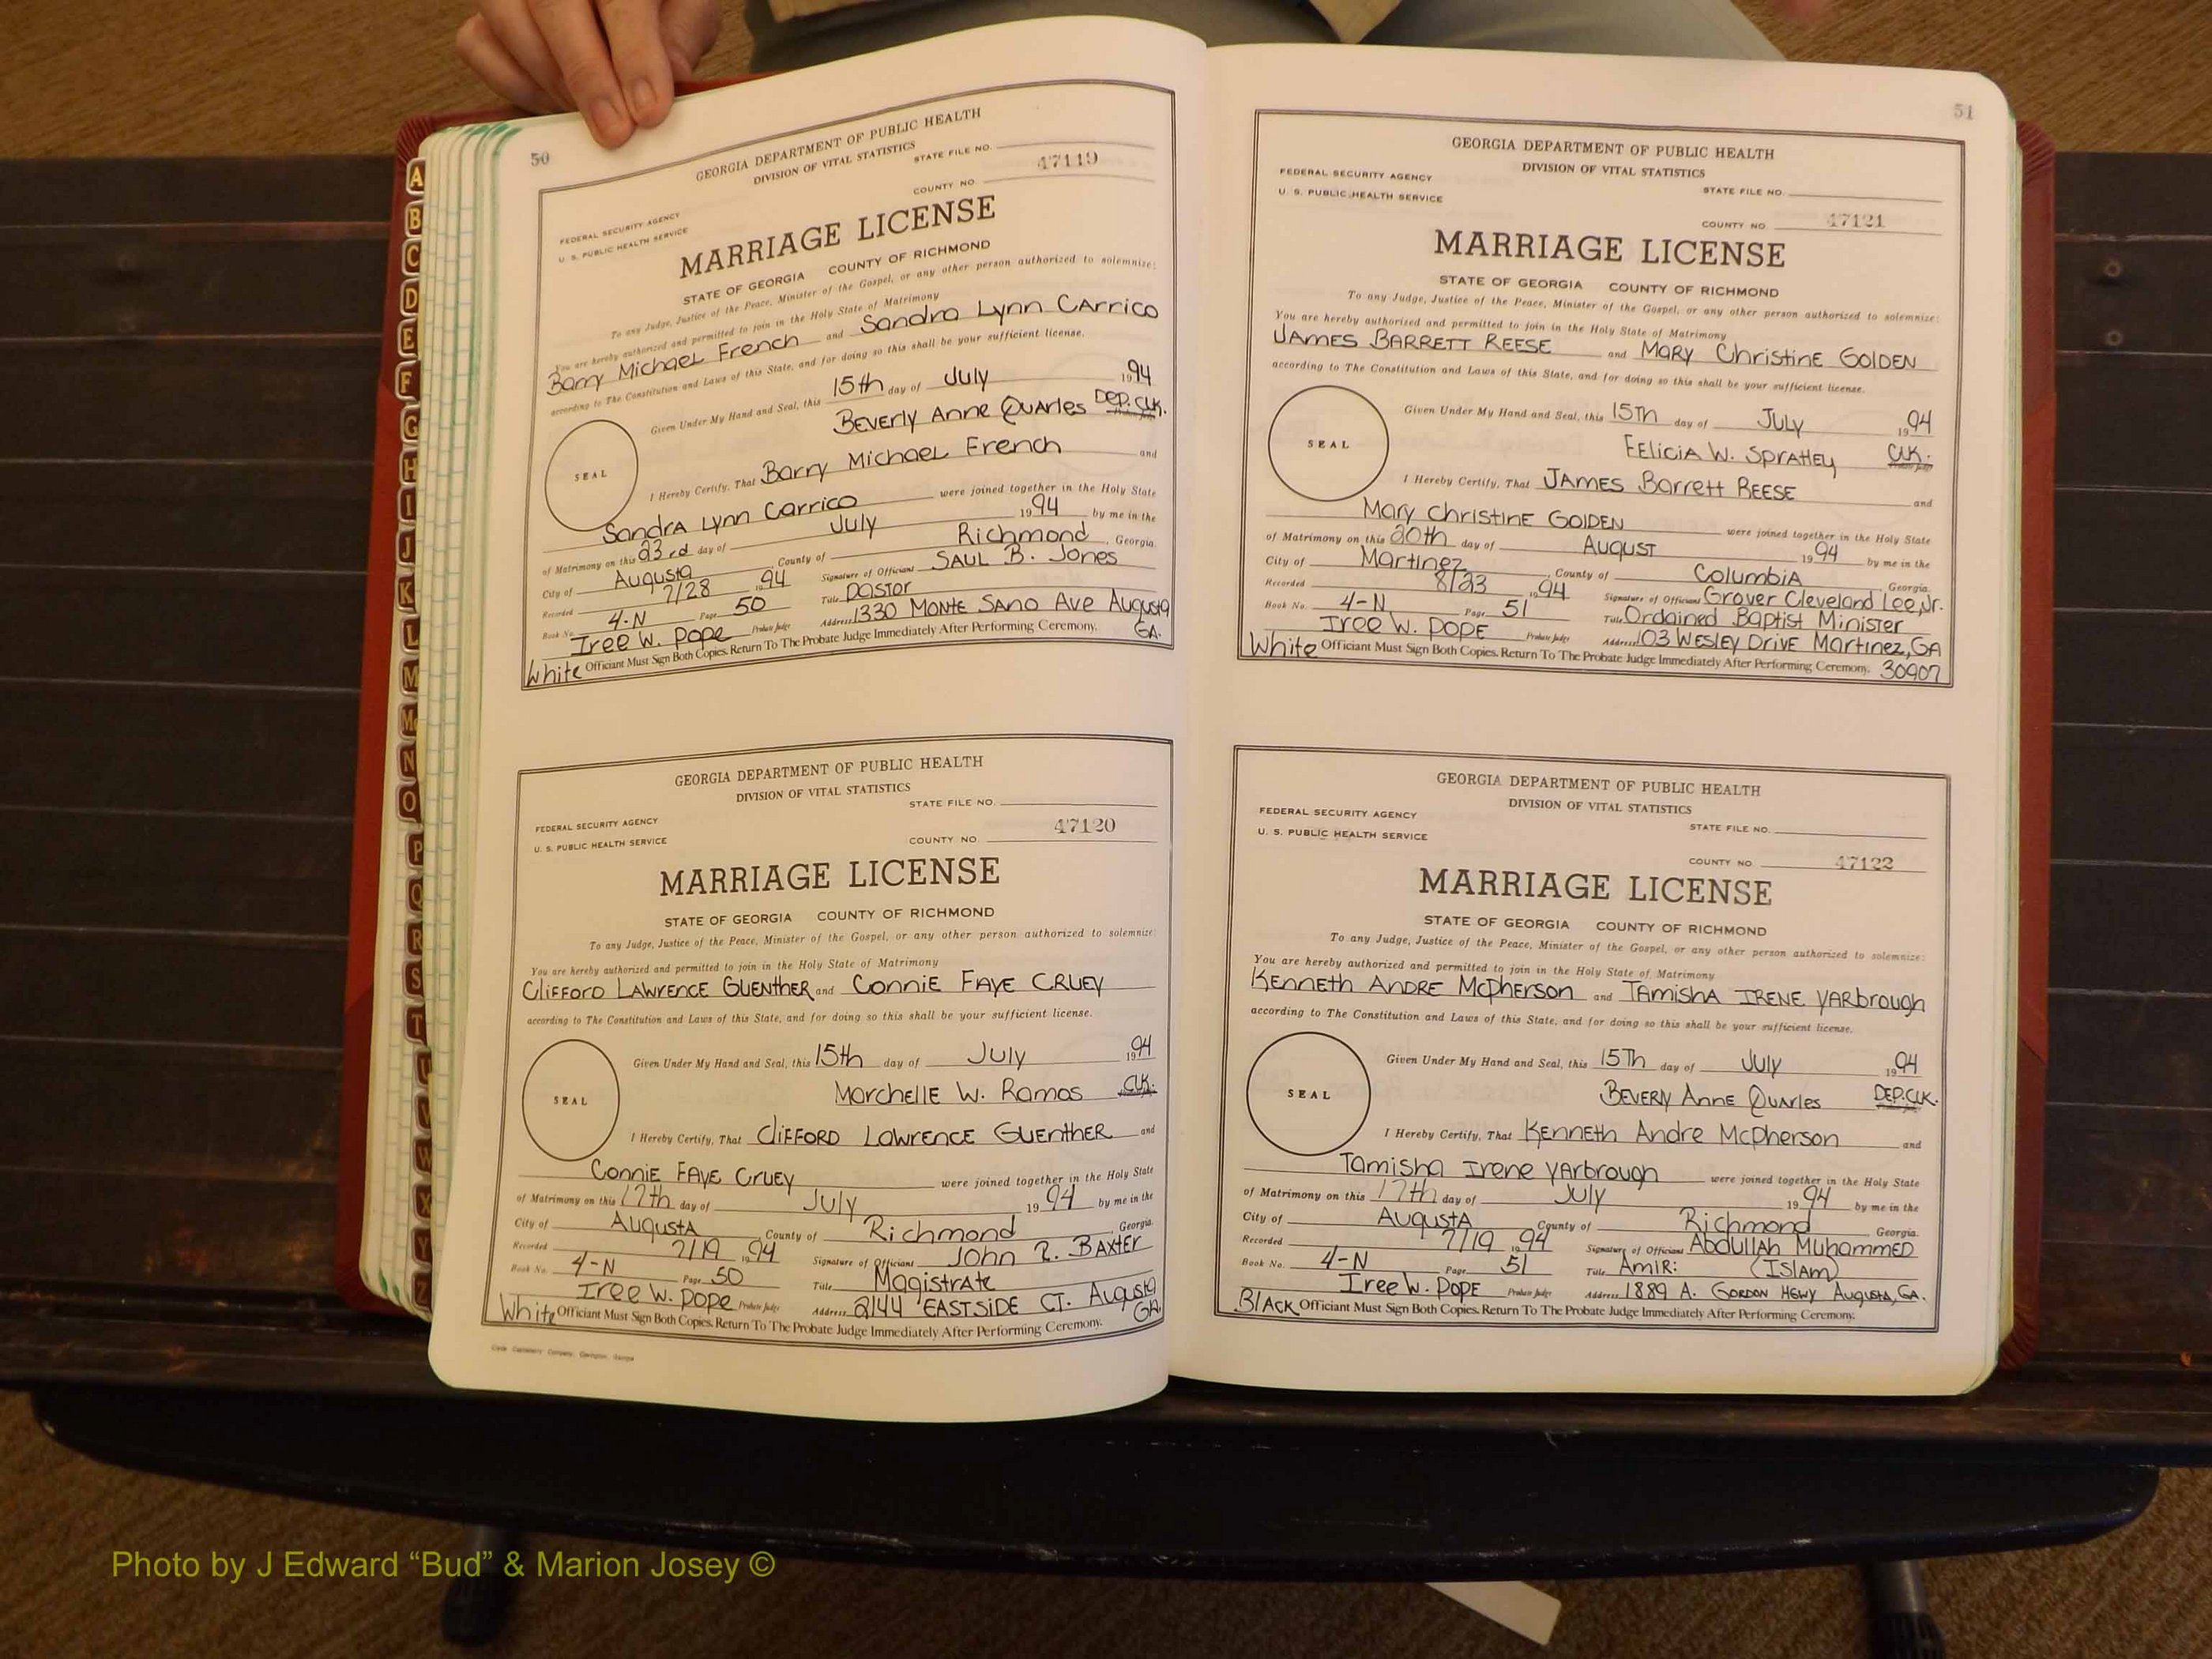 A
B
C
D
E
F
G
H
I
J
K
L
M
Mc
N
O
P
Q
R
S
T
U
V
W
X
Y
Z
50
GEORGIA DEPARTMENT OF PUBLIC HEALTH
DIVISION OF VITAL STATISTICS
STATE FILE NO.
FEDERAL SECURITY AGENCY
U. S. PUBLIC HEALTH SERVICE
COUNTY NO 47119
MARRIAGE LICENSE
STATE OF GEORGIA COUNTY OF RICHMOND
To any Judge, Justice of the Peace, Minister of the Gospel, or any other person authorized to solemnize:
You are hereby authorized and permitted to join in the Holy State of Matrimony
Barry Michael French and Sandra Lynn Carrico
according to The Constitution and Laws of this State, and for doing so this shall be your sufficient license.
Given Under My Hand and Seal, this 15th day of July 1994
Beverly Anne Quarles Dep. Clk.
SEAL
I Hereby Certify, That Barry Michael French and
Sandra Lynn Carrico were joined together in the Holy State
of Matrimony on this 23rd day of July 1994 by me in the
City of Augusta County of Richmond, Georgia.
Recorded 7/28 1994 Signature of Officiant Saul B. Jones
Book No. 4-N Page 50 Title Pastor
Iree W. Pope Probate Judge Address 1330 Monte Sano Ave Augusta GA.
White Officiant Must Sign Both Copies. Return To The Probate Judge Immediately After Performing Ceremony.
GEORGIA DEPARTMENT OF PUBLIC HEALTH
DIVISION OF VITAL STATISTICS
STATE FILE NO.
FEDERAL SECURITY AGENCY
U. S. PUBLIC HEALTH SERVICE
COUNTY NO 47120
MARRIAGE LICENSE
STATE OF GEORGIA COUNTY OF RICHMOND
To any Judge, Justice of the Peace, Minister of the Gospel, or any other person authorized to solemnize:
You are hereby authorized and permitted to join in the Holy State of Matrimony
Clifford Lawrence Guenther and Connie Faye Cruey
according to The Constitution and Laws of this State, and for doing so this shall be your sufficient license.
Given Under My Hand and Seal, this 15th day of July 1994
Marchelle W. Ramos Clk.
SEAL
I Hereby Certify, That Clifford Lawrence Guenther and
Connie Faye Cruey were joined together in the Holy State
of Matrimony on this 17th day of July 1994 by me in the
City of Augusta County of Richmond, Georgia.
Recorded 7/19 1994 Signature of Officiant John R. Baxter
Book No. 4-N Page 50 Title Magistrate
Iree W. Pope Probate Judge Address 2144 Eastside Ct. Augusta GA.
White Officiant Must Sign Both Copies. Return To The Probate Judge Immediately After Performing Ceremony.
51
GEORGIA DEPARTMENT OF PUBLIC HEALTH
DIVISION OF VITAL STATISTICS
FEDERAL SECURITY AGENCY
U. S. PUBLIC HEALTH SERVICE
STATE FILE NO.
COUNTY NO 47121
MARRIAGE LICENSE
STATE OF GEORGIA COUNTY OF RICHMOND
To any Judge, Justice of the Peace, Minister of the Gospel, or any other person authorized to solemnize:
You are hereby authorized and permitted to join in the Holy State of Matrimony
James Barrett Reese and Mary Christine Golden
according to The Constitution and Laws of this State, and for doing so this shall be your sufficient license.
Given Under My Hand and Seal, this 15th day of July 1994
Felicia W. Spratley Clk.
Probate Judge
SEAL
I Hereby Certify, That James Barrett Reese and
Mary Christine Golden were joined together in the Holy State
of Matrimony on this 20th day of August 1994 by me in the
City of Martinez, County of Columbia Georgia.
Recorded 8/23 1994 Signature of Officiant Grover Cleveland Lee, Jr.
Book No. 4-N Page 51 Title Ordained Baptist Minister
Iree W. Pope Probate Judge Address 103 Wesley Drive Martinez, GA
White Officiant Must Sign Both Copies. Return To The Probate Judge Immediately After Performing Ceremony. 30907
GEORGIA DEPARTMENT OF PUBLIC HEALTH
DIVISION OF VITAL STATISTICS
FEDERAL SECURITY AGENCY
U. S. PUBLIC HEALTH SERVICE
STATE FILE NO.
COUNTY NO. 47122
MARRIAGE LICENSE
STATE OF GEORGIA COUNTY OF RICHMOND
To any Judge, Justice of the Peace, Minister of the Gospel, or any other person authorized to solemnize:
You are hereby authorized and permitted to join in the Holy State of Matrimony
Kenneth Andre McPherson and Tamisha Irene Yarbrough
according to The Constitution and Laws of this State, and for doing so this shall be your sufficient license.
Given Under My Hand and Seal, this 15th day of July 1994
Beverly Anne Quarles Dep. Clk.
SEAL
I Hereby Certify, That Kenneth Andre McPherson and
Tamisha Irene Yarbrough were joined together in the Holy State
of Matrimony on this 17th day of July 1994 by me in the
City of Augusta County of Richmond Georgia.
Recorded 7/19 1994 Signature of Officiant Abdullah Muhammed
Book No. 4-N Page 51 Title Amir: (Islam)
Iree W. Pope Probate Judge Address 1889 A. Gordon Hgwy Augusta, GA.
Black Officiant Must Sign Both Copies. Return To The Probate Judge Immediately After Performing Ceremony.
Photo by J Edward “Bud” & Marion Josey ©